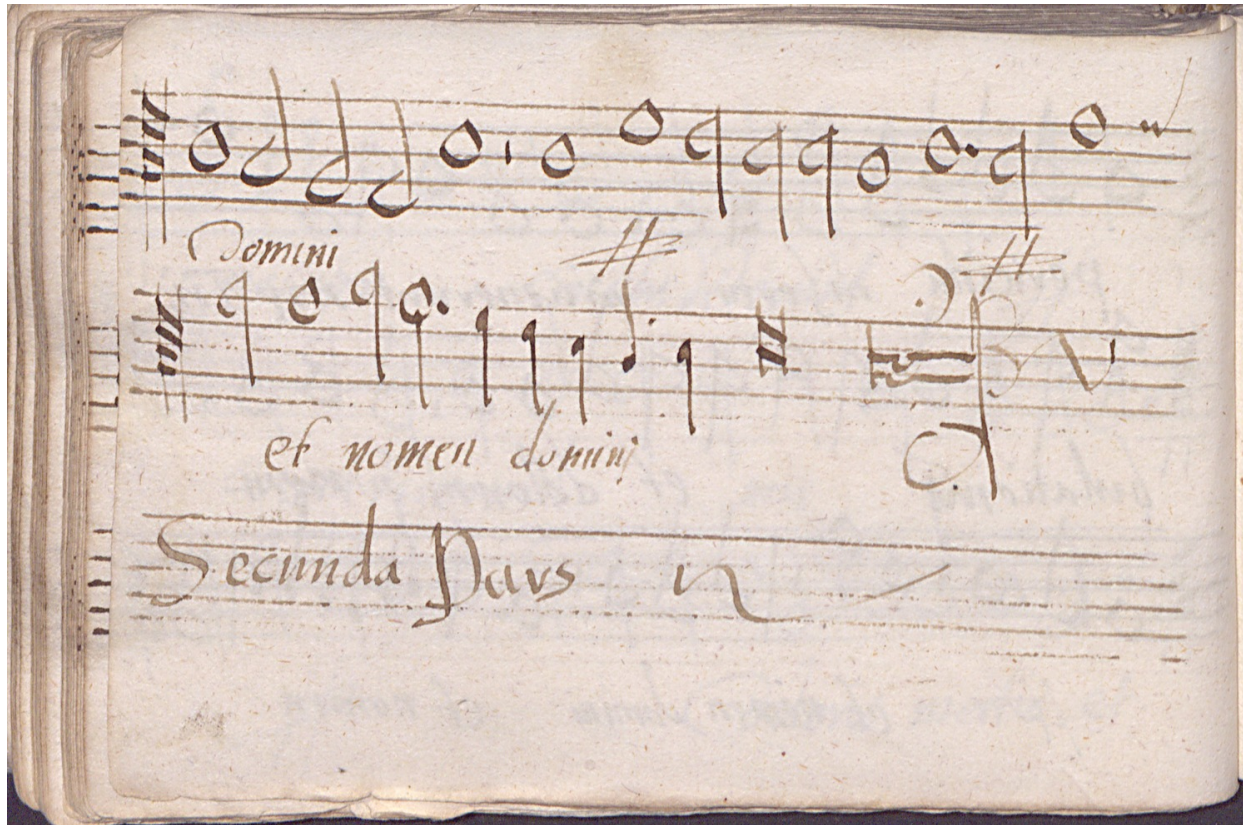 Domini
et nomen domini
Secunda Pars